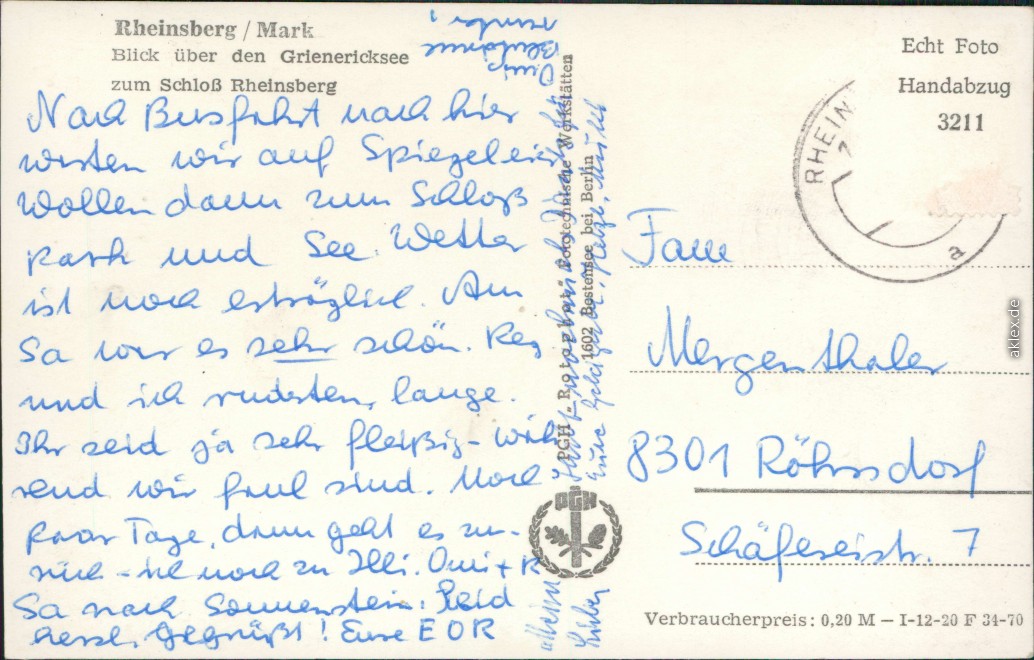 Rheinsberg / Mark
Blick über den Grienericksee
zum Schloß Rheinsberg
Nach Busfahrt nach hier
warten wir auf Spiegeleier
Wollen dann zum Schloß
park und See. Wetter
ist noch erträglich. Am
Sa war es sehr schön. Reg
und ich ruderten, lange.
Ihr seid ja sehr fleißig - wäh
rend wir faul sind. Noch
paar Tage, dann geht es zu-
rück - ich noch zu Illi. Omi + R
Sa nach Sonnenstein. Seid
herzl. gegrüßt! Eure E O R
Omi
allein
lieber
PGH - Rotophot - Fototechnische Werkstätten
1602 Bestensee bei Berlin
PGH
Echt Foto
Handabzug
3211
RHEIN
a
Fam
Mergenthaler
8301 Röhrsdorf
Schäfereistr. 7
Verbraucherpreis: 0,20 M — I-12-20 F 34-70
aklex.de